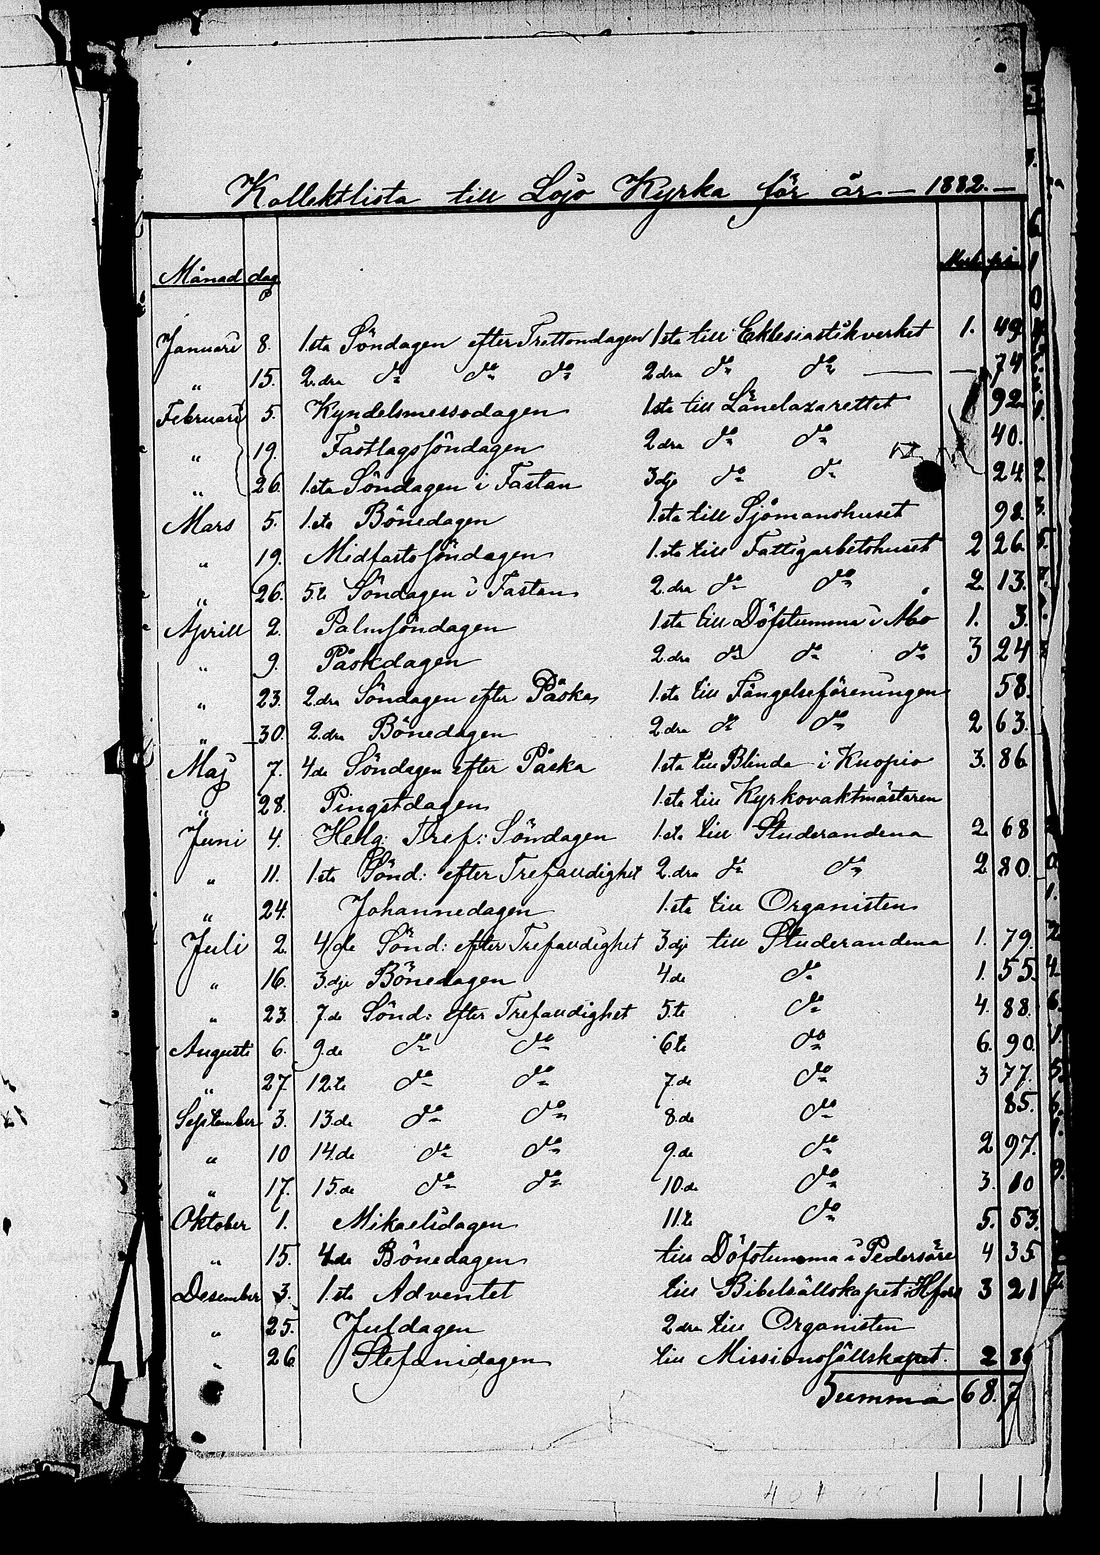 Kollektlista till Lojo Kyrka för år — 1882. —
Månad dag Mrk pi
Januari 8. 1.sta Söndagen efter Trettondagen 1.sta till Eklesiastikverket 1. 49
„ 15. 2.dra do do do 2dra do do — 74
Februari 5. Kyndelsmessodagen 1sta till Länelazarettet 92
„ 19. Fastlagssöndagen 2dra do do 40.
„ 26. 1.sta Söndagen i Fastan 3dje do do 24
Mars 5. 1.sta Bönedagen 1.sta till Sjömanshuset 98.
„ 19. Midfastosöndagen 1.sta till Fattigarbetshuset 2 26
„ 26. 5.te Söndagen i Fastan 2.dra do do 2 13.
Aprill 2. Palmsöndagen 1.sta till Döfstumma i Åbo 1. 3.
„ 9. Påskdagen 2.dra do do do 3 24
„ 23. 2.dra Söndagen efter Påska 1.sta till Fängelseföreningen 58.
„ 30. 2.dra Bönedagen 2.dra do do 2 63.
Maj 7. 4.de Söndagen efter Påska 1.sta till Blinda i Kuopio 3. 86
„ 28. Pingstdagen 1.sta till Kyrkovaktmästaren
Juni 4. Helg: Tref: Söndagen 1.sta till Studerandena 2 68
„ 11. 1.sta Sönd: efter Trefaudighet 2.dra do do 2 80
„ 24. Johannedagen 1.sta till Organisten
Juli 2. 4/de Sönd: efter Trefaudighet 3.dje till Studerandena 1. 79.
„ 16. 3.dje Bönedagen 4.de do 1. 55.
„ 23. 7.de Sönd: efter Trefaudighet 5.te do 4. 88.
Augusti 6. 9.de do do 6te do 6. 90.
„ 27. 12.te do do 7.de do 3 77.
September 3. 13.de do do 8.de do 85.
„ 10 14.de do do 9.de do 2 97.
„ 17. 15.de do do 10.de do 3. 10
Oktober 1. Mikaelidagen 11.te do 5. 53.
„ 15. 4.de Bönedagen till Döfstumma i Pedersöre 4 35
Desember 3. 1.sta Adventet till Bibelsällskapet i Hfors 3 21
„ 25. Juldagen 2dra till Organisten
„ 26 Stefanidagen till Missionssällskapet. 2 86
Summa 68. 7